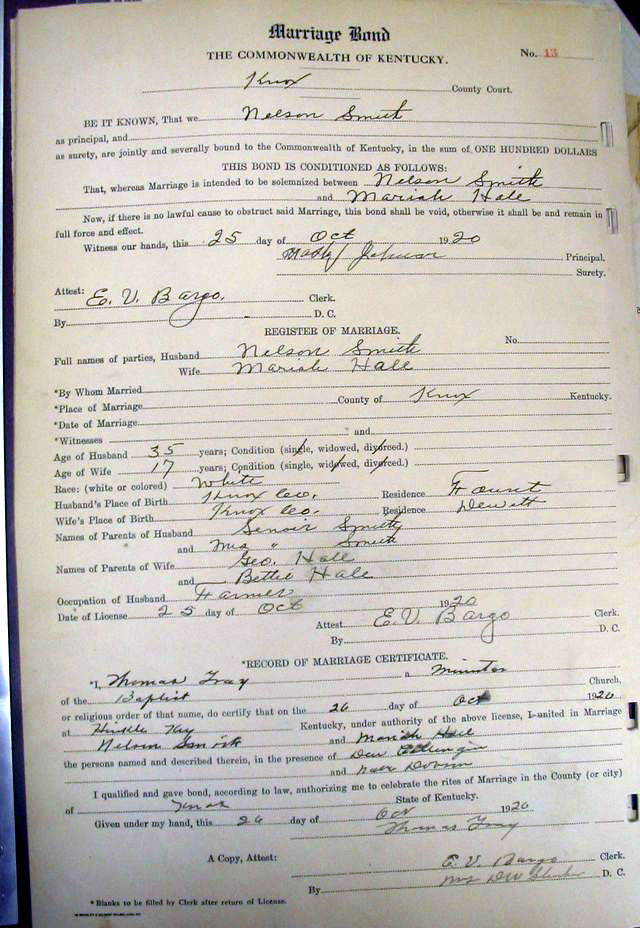 Marriage Bond
THE COMMONWEALTH OF KENTUCKY.
No. 13
Knox County Court.
BE IT KNOWN, That we Nelson Smith
as principal, and
as surety, are jointly and severally bound to the Commonwealth of Kentucky, in the sum of ONE HUNDRED DOLLARS
THIS BOND IS CONDITIONED AS FOLLOWS:
That, whereas Marriage is intended to be solemnized between Nelson Smith
and Mariah Hale
Now, if there is no lawful cause to obstruct said Marriage, this bond shall be void, otherwise it shall be and remain in
full force and effect.
Witness our hands, this 25 day of Oct 1920
Johnson Principal.
Surety.
Attest: E. V. Bargo. Clerk.
By D. C.
REGISTER OF MARRIAGE.
No.
Full names of parties, Husband Nelson Smith
Wife Mariah Hale
*By Whom Married
*Place of Marriage County of Knox Kentucky.
*Date of Marriage
*Witnesses and
Age of Husband 35 years; Condition (single, widowed, divorced.)
Age of Wife 17 years; Condition (single, widowed, divorced.)
Race: (white or colored) White
Husband's Place of Birth Knox Co. Residence Fount
Wife's Place of Birth Knox Co. Residence Dewitt
Names of Parents of Husband Senoir Smith
and Mrs " Smith
Names of Parents of Wife Geo. Hale
and Bettie Hale
Occupation of Husband Farmer
Date of License 25 day of Oct 1920
Attest E. V. Bargo Clerk.
By D. C.
*RECORD OF MARRIAGE CERTIFICATE.
*I, Thomas Gray a Minister
of the Baptist Church,
or religious order of that name, do certify that on the 26 day of Oct 1920
at Hinkle Ky Kentucky, under authority of the above license, I united in Marriage
Nelson Smith and Mariah Hale
the persons named and described therein, in the presence of
and
I qualified and gave bond, according to law, authorizing me to celebrate the rites of Marriage in the County (or city)
of Knox State of Kentucky.
Given under my hand, this 26 day of Oct 1920
Thomas Gray
A Copy, Attest: E. V. Bargo Clerk.
By D. C.
*Blanks to be filled by Clerk after return of License.